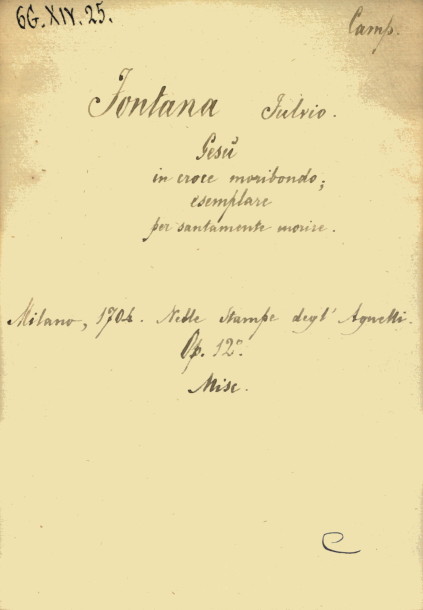 6G.XIV.25.
Camp.
Fontana Fulvio.
Gesù
in croce moribondo;
esemplare
per santamente morire.
Milano, 1704. Nelle Stampe degl' Agnelli.
Op. 12º.
Misc.
C